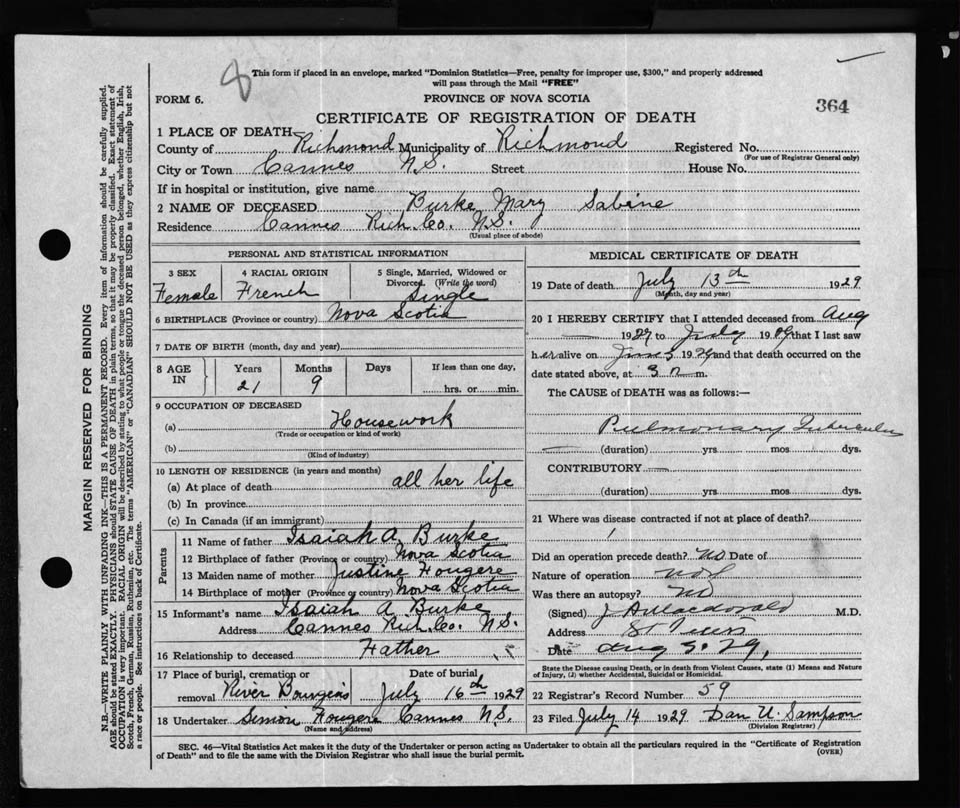 8
This form if placed in an envelope, marked "Dominion Statistics—Free, penalty for improper use, $300," and properly addressed
will pass through the Mail "FREE"
FORM 6.
PROVINCE OF NOVA SCOTIA
364
CERTIFICATE OF REGISTRATION OF DEATH
1 PLACE OF DEATH
County of Richmond Municipality of Richmond Registered No.
(For use of Registrar General only)
City or Town Cannes N.S. Street House No.
If in hospital or institution, give name
2 NAME OF DECEASED Burke Mary Sabine
Residence Cannes Rich. Co. N.S.
(Usual place of abode)
PERSONAL AND STATISTICAL INFORMATION
3 SEX Female
4 RACIAL ORIGIN French
5 Single, Married, Widowed or
Divorced. (Write the word)
Single
6 BIRTHPLACE (Province or country) Nova Scotia
7 DATE OF BIRTH (month, day and year)
8 AGE IN
Years Months Days If less than one day,
21 9 hrs. or min.
9 OCCUPATION OF DECEASED
(a) Housework
(Trade or occupation or kind of work)
(b)
(Kind of industry)
10 LENGTH OF RESIDENCE (in years and months)
(a) At place of death all her life
(b) In province
(c) In Canada (if an immigrant)
Parents
11 Name of father Isaiah A Burke
12 Birthplace of father (Province or country) Nova Scotia
13 Maiden name of mother Justine Fougere
14 Birthplace of mother (Province or country) Nova Scotia
15 Informant's name Isaiah A Burke
Address Cannes Rich. Co. N.S.
16 Relationship to deceased Father
17 Place of burial, cremation or Date of burial
removal River Bourgeois July 16th 1929
18 Undertaker Simon Fougere Cannes N.S.
(Name and address)
MEDICAL CERTIFICATE OF DEATH
19 Date of death July 13th 1929
(Month, day and year)
20 I HEREBY CERTIFY that I attended deceased from Aug
19 to July 19 that I last saw
her alive on 19 and that death occurred on
date stated above, at 3 m.
The CAUSE OF DEATH was as follows:—
Pulmonary Tuberculosis
(duration) yrs mos dys.
CONTRIBUTORY
(duration) yrs. mos. dys.
21 Where was disease contracted if not at place of death?
Did an operation precede death? No Date of
Nature of operation
Was there an autopsy? No
(Signed) J A Macdonald M.D.
Address St Peters
Date Aug 3. 29,
State the Disease causing Death, or in death from Violent Causes, state (1) Means and Nature
of Injury, (2) whether Accidental, Suicidal or Homicidal.
22 Registrar's Record Number 59
23 Filed July 14 1929 Dan U. Sampson
(Division Registrar)
SEC. 46—Vital Statistics Act makes it the duty of the Undertaker or person acting as Undertaker to obtain all the particulars required in the "Certificate of Registration
of Death" and to file the same with the Division Registrar who shall issue the burial permit. (OVER)
MARGIN RESERVED FOR BINDING
N.B.—WRITE PLAINLY WITH UNFADING INK—THIS IS A PERMANENT RECORD. Every item of information should be carefully supplied.
AGE should be stated EXACTLY. PHYSICIANS should STATE CAUSE OF DEATH in plain terms, so that it may be properly classified. Exact statement of
OCCUPATION is very important. RACIAL ORIGIN will be described by stating to what people or tongue the deceased person belonged, whether English, Irish,
Scotch, French, German, Russian, Ruthenian, etc. The terms "AMERICAN" or "CANADIAN" SHOULD NOT BE USED as they express citizenship but not
a race or people. See instructions on back of Certificate.